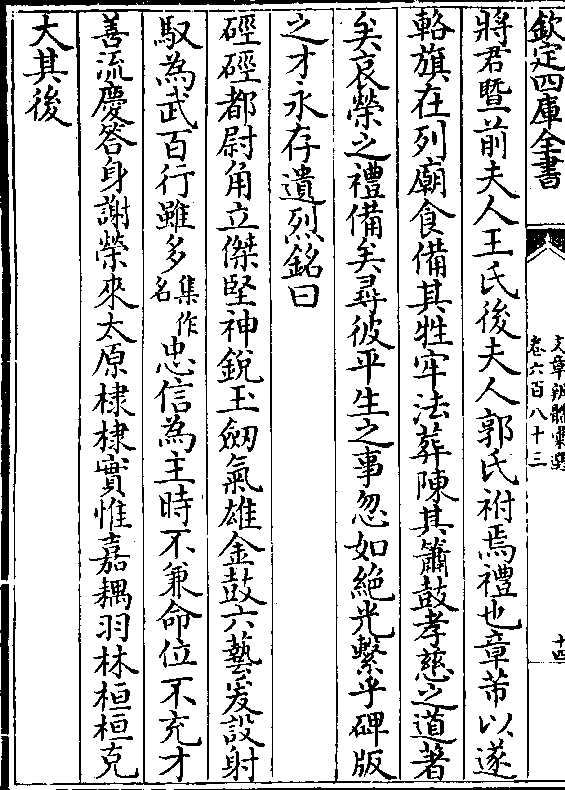 欽定四庫全書
文章辨體彙選
卷六百八十三
十四
將君暨前夫人王氏後夫人郭氏祔焉禮也章芾以遂
輅旗在列廟食備其牲牢法葬陳其簫鼓孝慈之道著
矣哀榮之禮備矣尋彼平生之事忽如絶光繫乎碑版
之才永存遺烈銘曰
硜硜都尉角立傑堅神銳玉劒氣雄金鼓六藝爰設射
馭為武百行雖多集作名忠信為主時不兼命位不充才
善流慶答身謝榮來太原棣棣實惟嘉耦羽林桓桓克
大其後